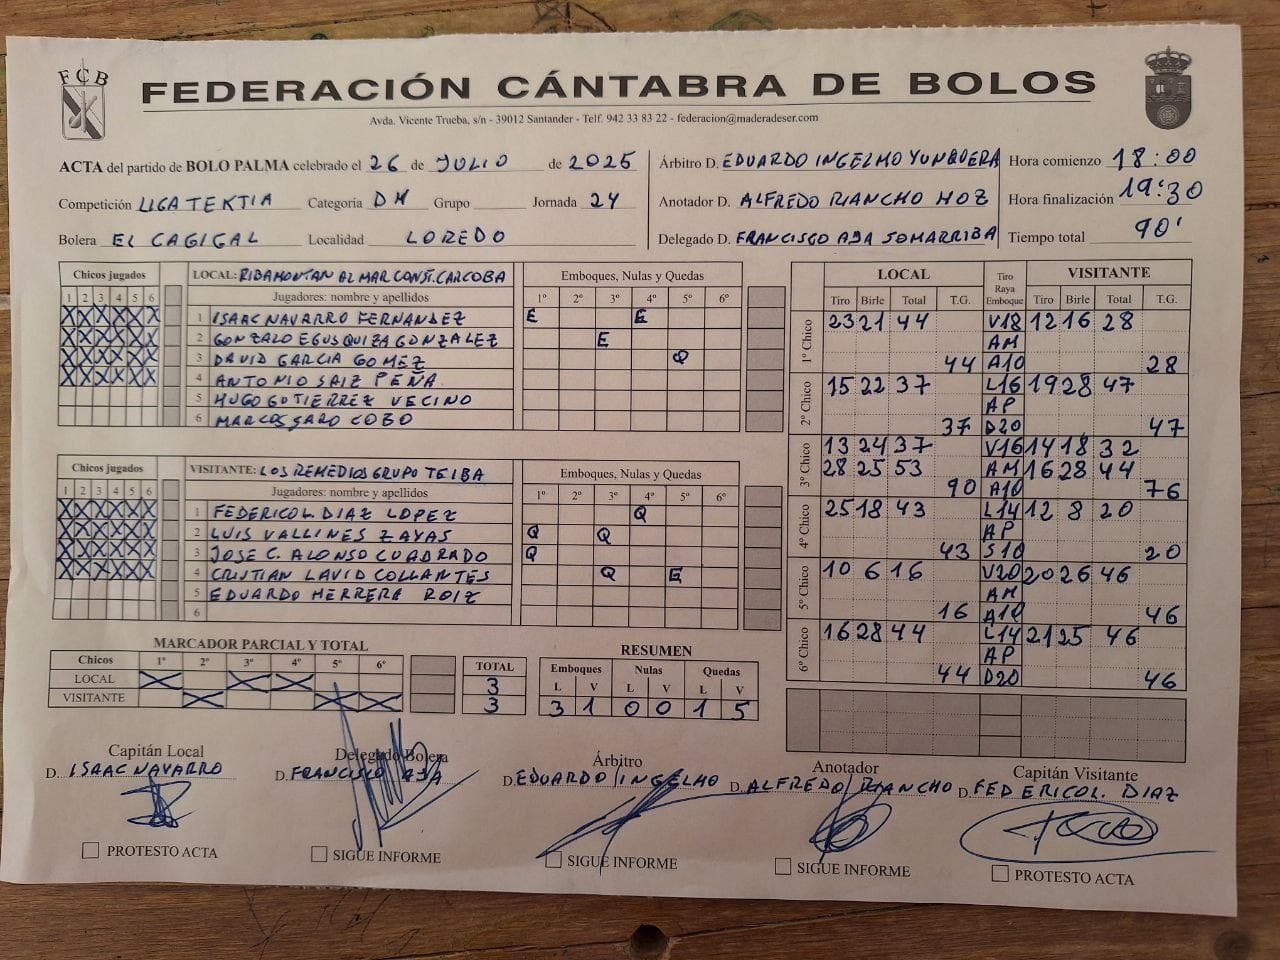 FCB
FEDERACIÓN CÁNTABRA DE BOLOS
Avda. Vicente Trueba, s/n - 39012 Santander - Telf. 942 33 83 22 - federacion@maderadeser.com
ACTA del partido de BOLO PALMA celebrado el 26 de JULIO de 2025
Competición LIGA TEKTIA Categoría DH Grupo Jornada 24
Bolera EL CAGIGAL Localidad LOREDO
Árbitro D. EDUARDO INGELMO YUNQUERA
Anotador D. ALFREDO RIANCHO HOZ
Delegado D. FRANCISCO AJA SOMARRIBA
Hora comienzo 18:00
Hora finalización 19:30
Tiempo total 90'
Chicos jugados
1 2 3 4 5 6
X X X X X X
X X X X X X
X X X X X X
X X X X X X
LOCAL: RIBAMONTAN AL MAR CONST. CARCOBA
Jugadores: nombre y apellidos
1 ISAAC NAVARRO FERNANDEZ
2 GONZALO EGUSQUIZA GONZALEZ
3 DAVID GARCIA GOMEZ
4 ANTONIO SAIZ PEÑA
5 HUGO GUTIERREZ VECINO
6 MARCOS SARO COBO
Emboques, Nulas y Quedas
1º 2º 3º 4º 5º 6º
E E
E
Q
Chicos jugados
1 2 3 4 5 6
X X X X X X
X X X X X X
X X X X X X
X X X X X X
VISITANTE: LOS REMEDIOS GRUPO TEIBA
Jugadores: nombre y apellidos
1 FEDERICO L. DIAZ LOPEZ
2 LUIS VALLINES ZAYAS
3 JOSE C. ALONSO CUADRADO
4 CRISTIAN LAVID COLLANTES
5 EDUARDO HERRERA ROIZ
6
Emboques, Nulas y Quedas
1º 2º 3º 4º 5º 6º
Q
Q Q
Q
Q E
LOCAL Tiro Raya Emboque VISITANTE
Tiro Birle Total T.G. Tiro Birle Total T.G.
1º Chico
23 21 44 V18 12 16 28
AM
44 A10 28
2º Chico
15 22 37 L16 19 28 47
AP
37 D20 47
3º Chico
13 24 37 V16 14 18 32
28 25 53 AM 16 28 44
90 A10 76
4º Chico
25 18 43 L14 12 8 20
AP
43 S10 20
5º Chico
10 6 16 V20 20 26 46
AM
16 A10 46
6º Chico
16 28 44 L14 21 25 46
AP
44 D20 46
MARCADOR PARCIAL Y TOTAL
Chicos 1º 2º 3º 4º 5º 6º TOTAL
LOCAL X X X 3
VISITANTE X X X 3
RESUMEN
Emboques Nulas Quedas
L V L V L V
3 1 0 0 1 5
Capitán Local
D. ISAAC NAVARRO
PROTESTO ACTA
Delegado Bolera
D. FRANCISCO AJA
SIGUE INFORME
Árbitro
D. EDUARDO INGELMO
SIGUE INFORME
Anotador
D. ALFREDO RIANCHO
SIGUE INFORME
Capitán Visitante
D. FEDERICO L. DIAZ
PROTESTO ACTA